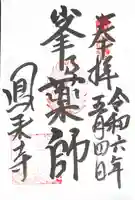 奉拝
令和六年五月四日
峯薬師
鳳来寺